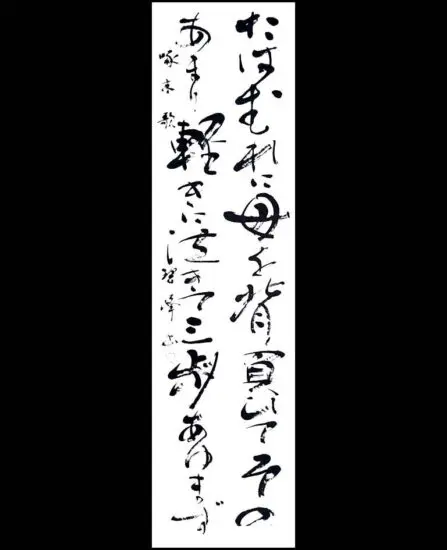 たはむれに母を背負ひてその
あまり軽きに泣きて三歩あゆまず
啄木歌